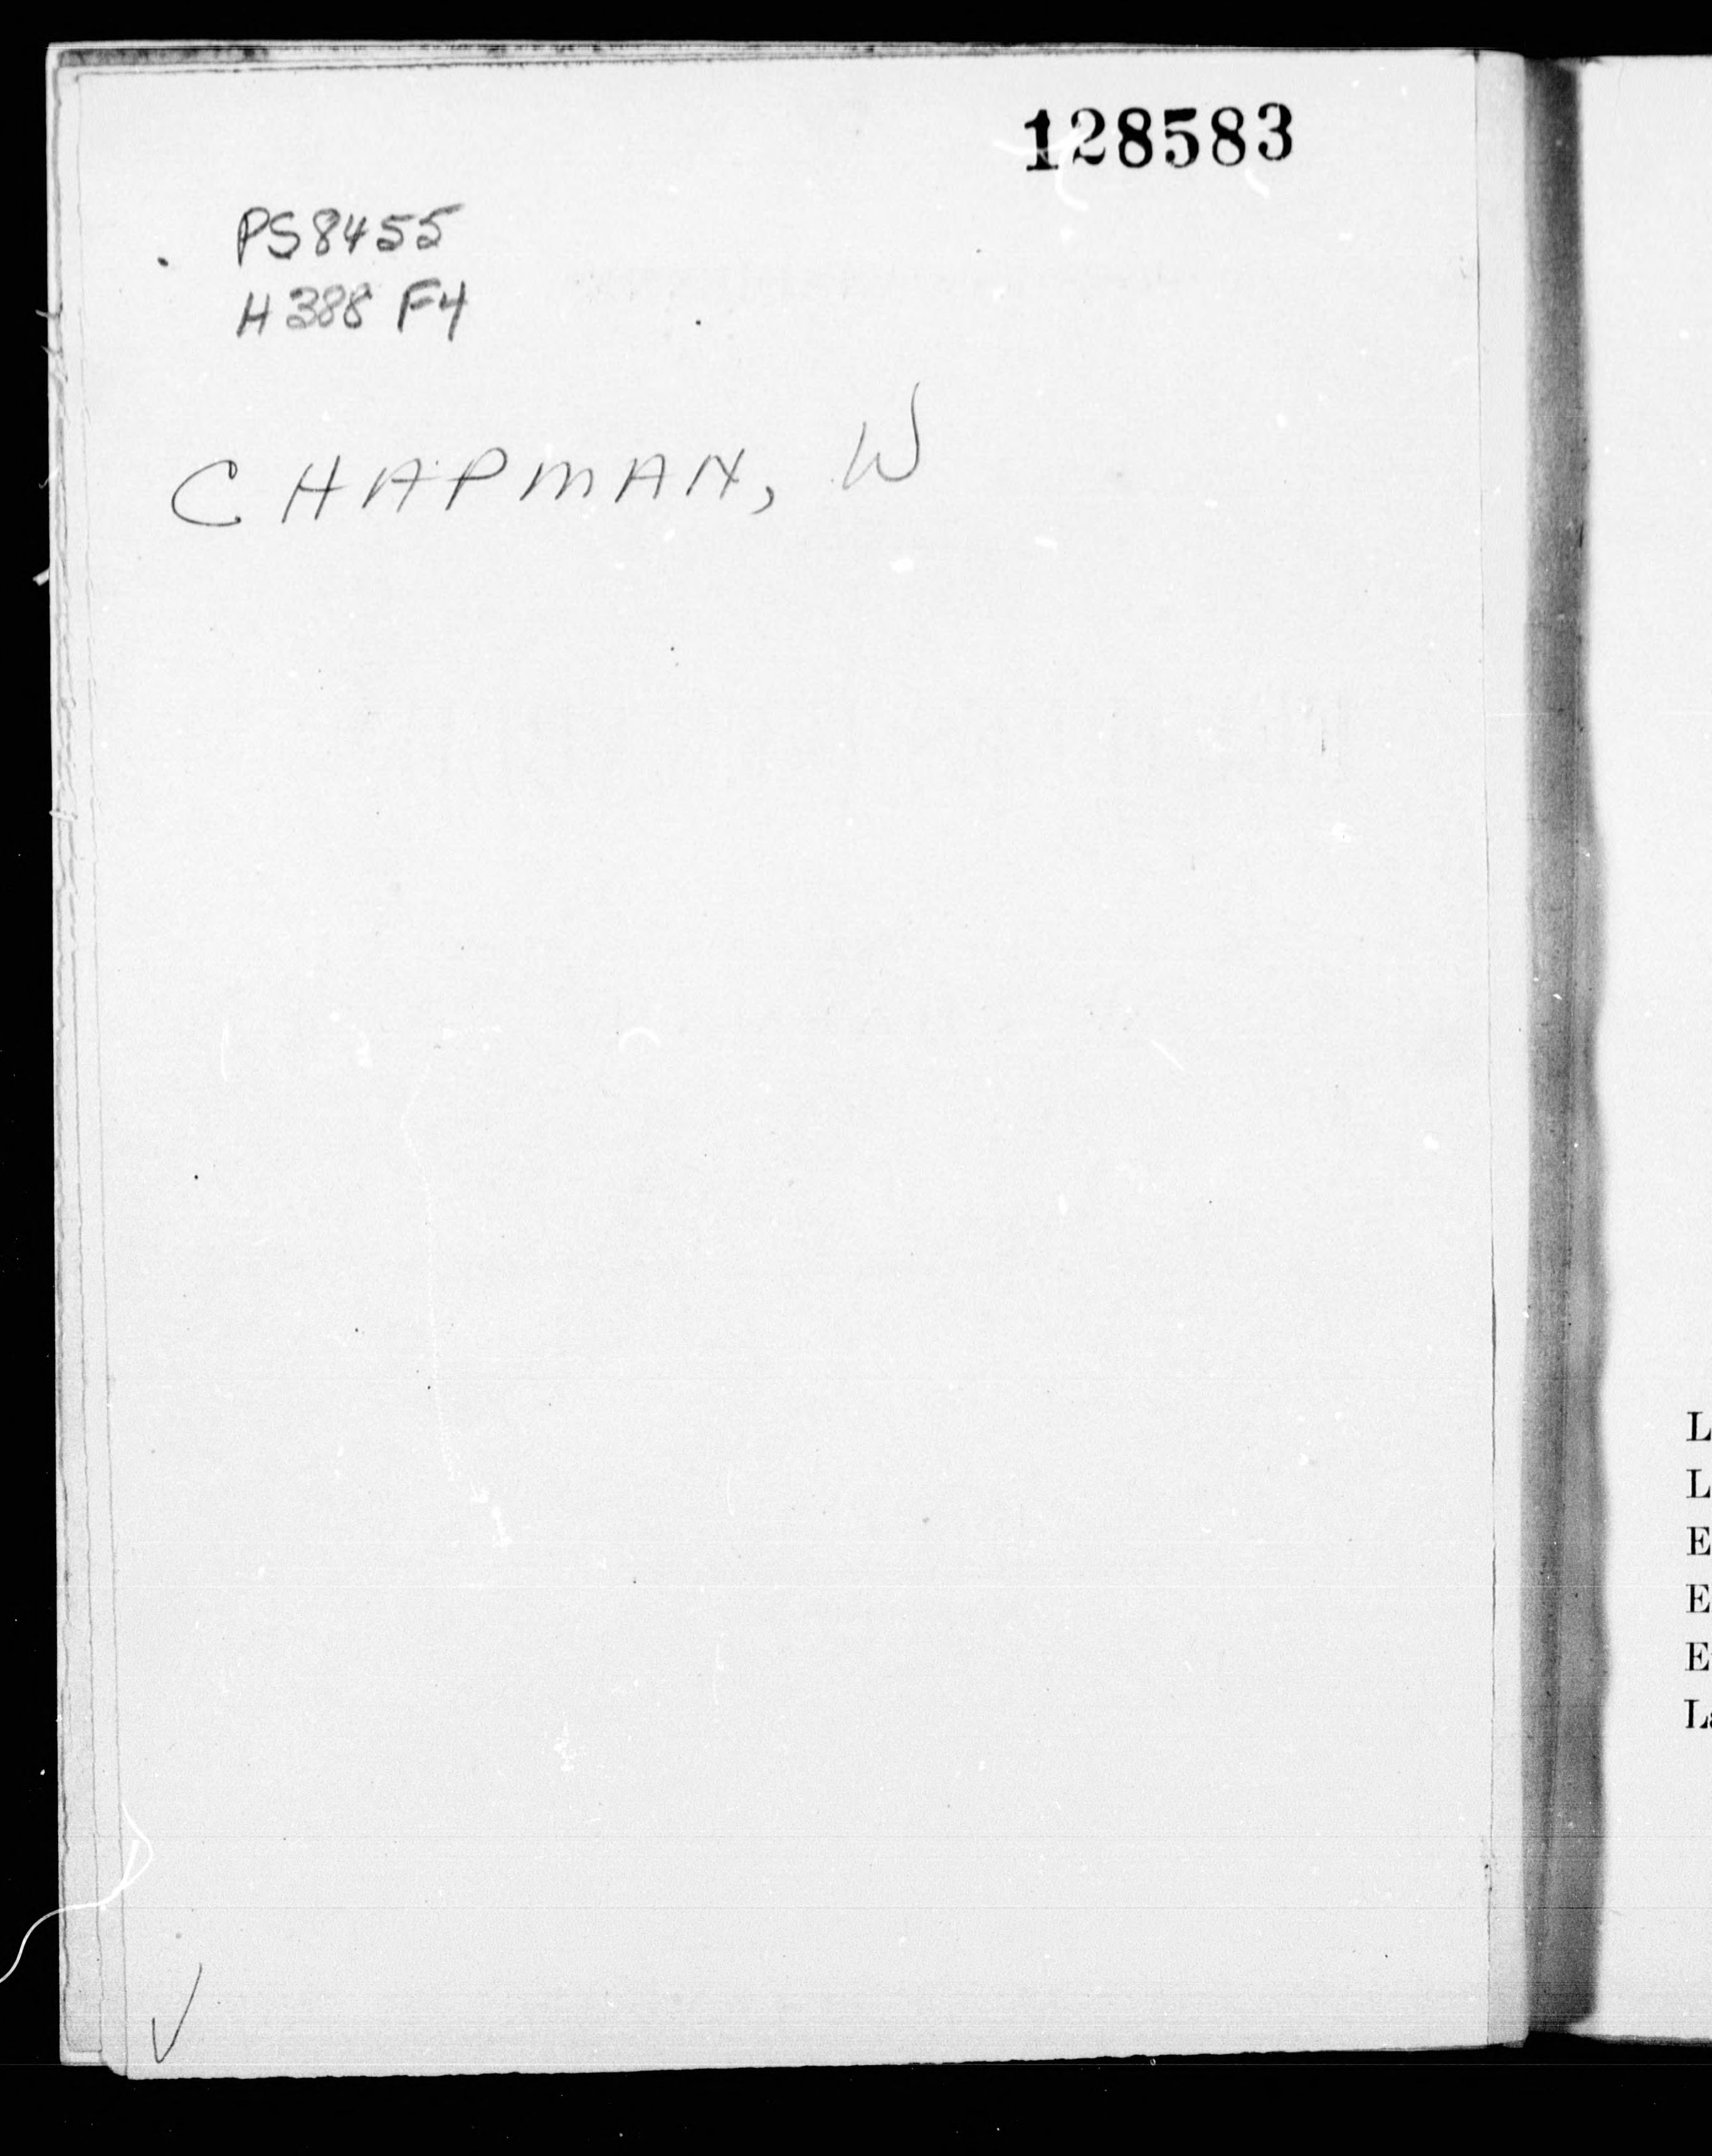 128583
PS8455
H388 F4
CHAPMAN, W
L
L
E
E
E
La